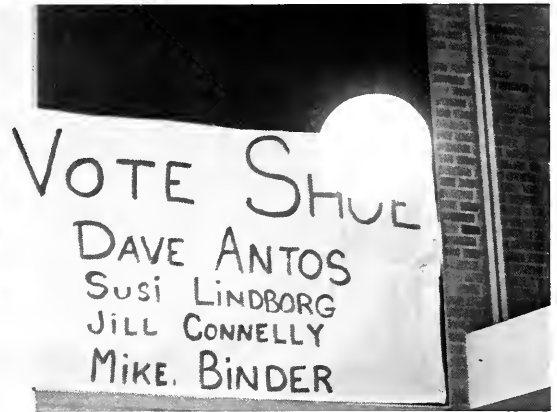 VOTE SHUE
DAVE ANTOS
SUSi LiNDBORG
JiLL CONNELLY
MiKE. BiNDER